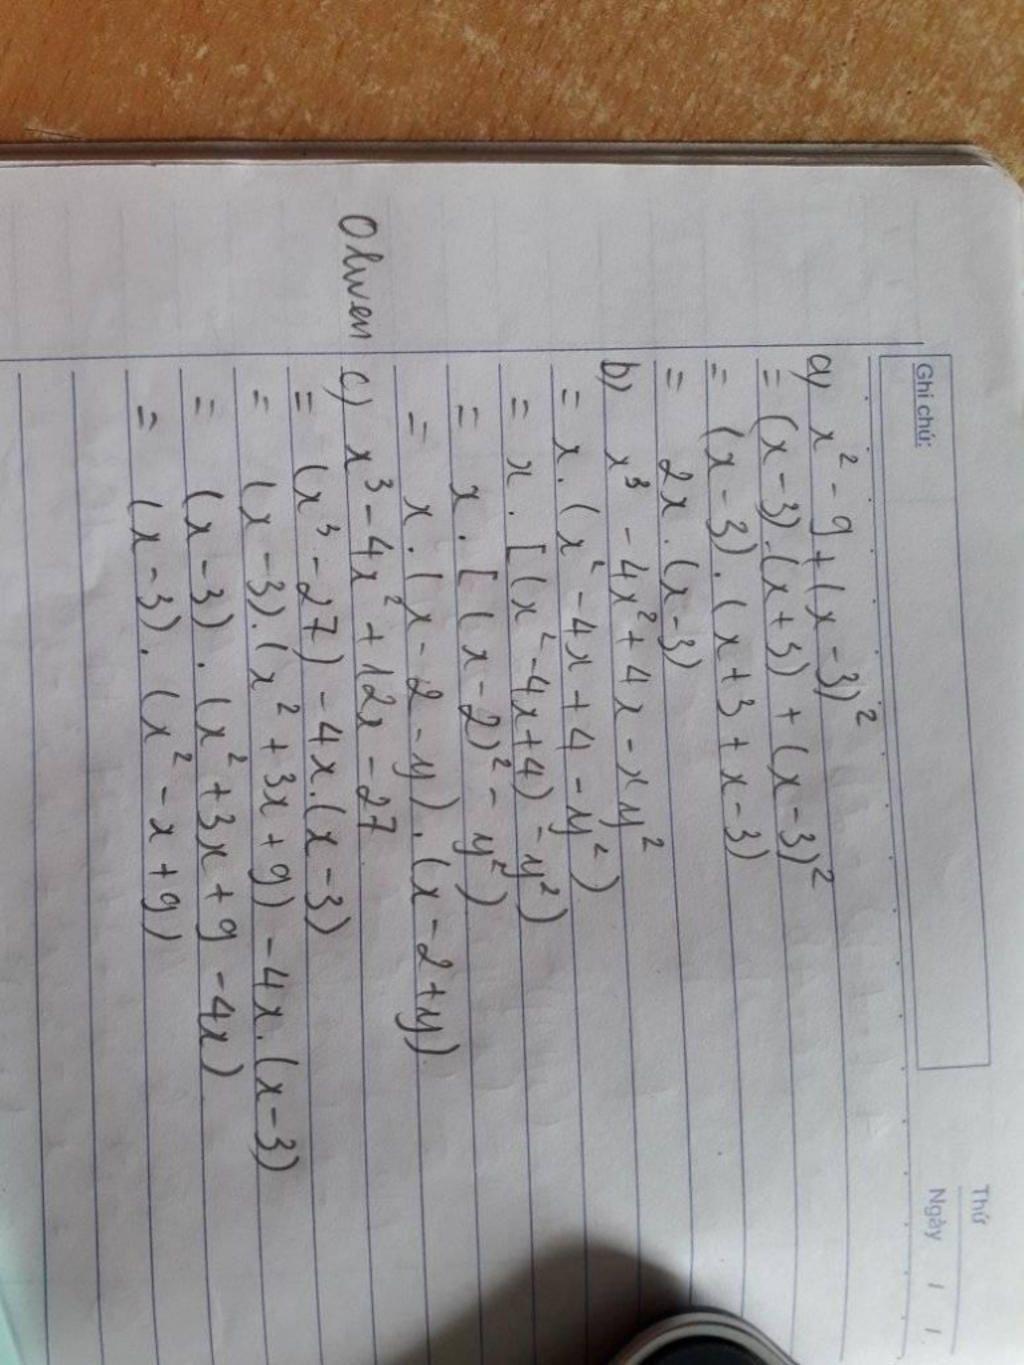 Thứ
Ghi chú:
Ngày / /
a) x² - 9 + (x - 3)²
= (x - 3).(x + 3) + (x - 3)²
= (x - 3).(x + 3 + x - 3)
= 2x.(x - 3)
b) x³ - 4x² + 4x - xy²
= x.(x² - 4x + 4 - y²)
= x.[(x² - 4x + 4) - y²)
= x.[(x - 2)² - y²)
= x.(x - 2 - y).(x - 2 + y)
Olwen c) x³ - 4x² + 12x - 27
= (x³ - 27) - 4x.(x - 3)
= (x - 3).(x² + 3x + 9) - 4x.(x - 3)
= (x - 3).(x² + 3x + 9 - 4x)
= (x - 3).(x² - x + 9)